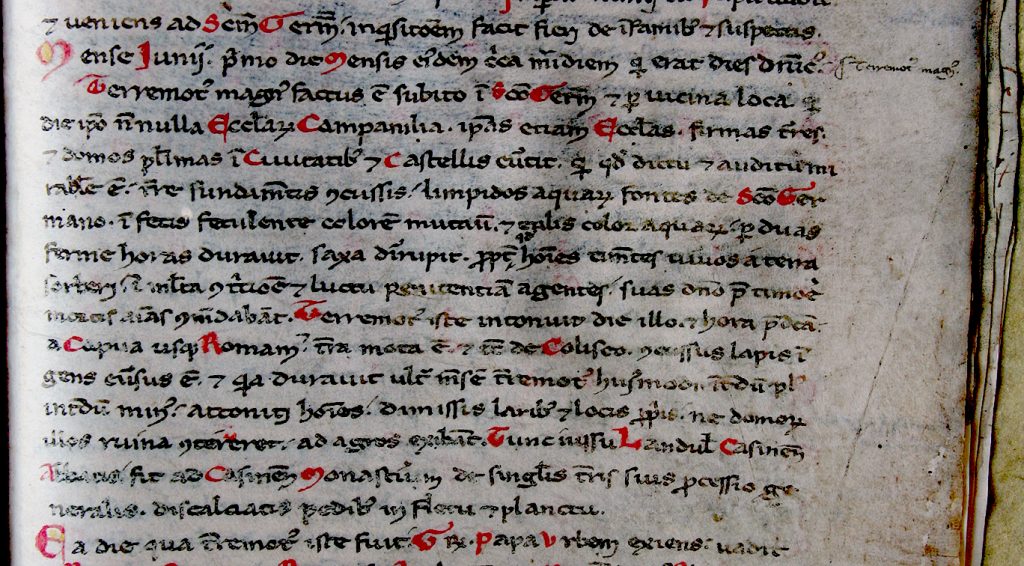 ⁊ veniens ad Scm̄ Germ̄. inq̄sitōem facit fieri de īfamib; ⁊ suspectis.
Mense Iunij. p̄mo die mensis eiꝰdem c̄ca m̄idiem q̄ erat dies dn̄ic̄.
Terremotꝰ magn̄.
Terremotꝰ magnꝰ factus ē subito ī Sc̄o Germ̄ ⁊ ꝑ vicina loca q̄
die ip̄o nōnulla Eccl̄aꝝ Campanilia. ip̄as etiam Eccl̄as. firmas t̄res.
⁊ domos pl̄imas ī Ciuitatib; ⁊ Castellis eūtit. q̄ qd̄ dictu ⁊ auditu mi
rabile ē. t̄re fundam̄tis ꝯcussis. limpidos aquaꝝ fontes de Sc̄o Ger
mano. ī fecis feculente colorē mutauit. ⁊ color aquaꝝ. ꝑ duas
ferme horas durauit. saxa dirrupit. ꝓpt̄ qd̄ hoīes tim̄tes viuos a terra
sorberi. ī ml̄ta ꝯt̄cioē ⁊ luctu penitentiā agentes. suas dn̄o p̄ timoē
mortis aīas ꝯm̄dabāt. Terremotꝰ iste intonuit die illo. ⁊ hora p̄dc̄a.
a Capua usq; Romam. t̄ra mota ē. ⁊ de Coliseo. ꝯcussus lapis ī
gens eūsus ē. ⁊ q̄a durauit ult̄ m̄sē t̄remotꝰ huiꝰmodi. īt̄dū plꝰ
int̄dū minꝰ. attoniti hoīes. dimissis larib; ⁊ locis ꝓpriis. ne domoꝝ
illos ruina ꝯtereret. ad agros exibāt. Tunc iussu Landulf̄ Casinen̄
Abbatis fit ad Casinen̄ Monast̄ium de singlis t̄ris suis ꝓcessio ge
neralis. discalciatis pedib; in fletu ⁊ planctu.
Ea die qua t̄remotꝰ iste fuit. Gr̄. Papa Vrbem exiens. vadit